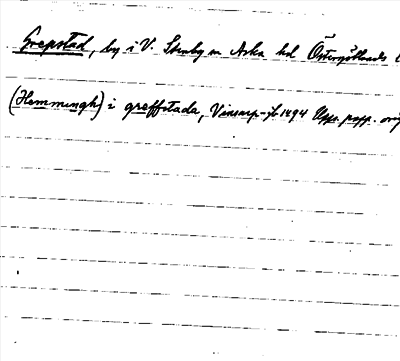 Grepstad, by i V. Stenby sn Aska hd Östergötlands
(Hemmingh) i greffstada, Vinsarp-jb 1494 Upps. papp. orig